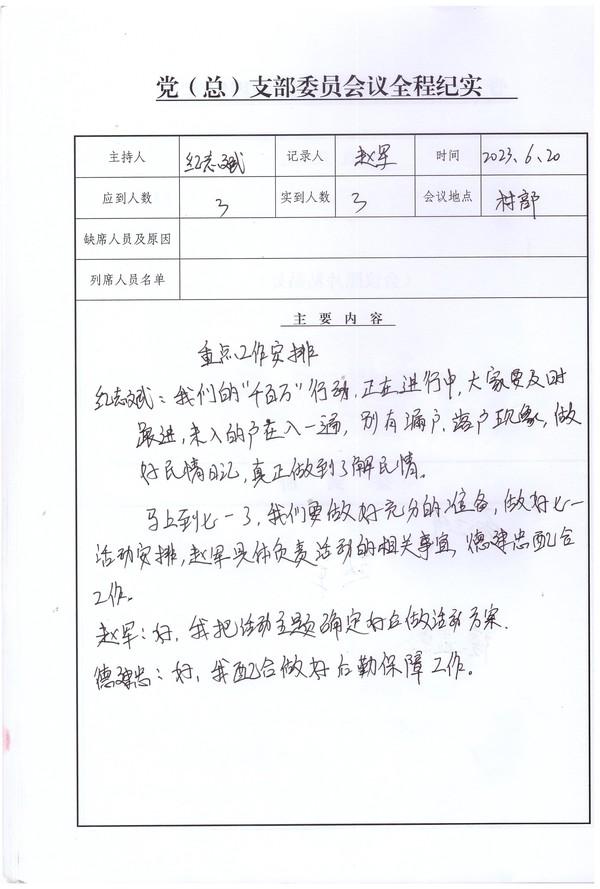 党（总）支部委员会议全程纪实
主持人 纪志斌 记录人 赵军 时间 2023.6.20
应到人数 3 实到人数 3 会议地点 村部
缺席人员及原因
列席人员名单
主要内容
重点工作安排
纪志斌：我们的“千百万”行动，正在进行中，大家要及时
跟进，未入的户在入一遍，别有漏户、落户现象，做
好民情日记，真正做到了解民情。
马上到七一了，我们要做好充分的准备，做好七一
活动安排，赵军具体负责活动的相关事宜，德建忠配合
工作。
赵军：好，我把活动主题确定好后做活动方案。
德建忠：好，我配合做好后勤保障工作。